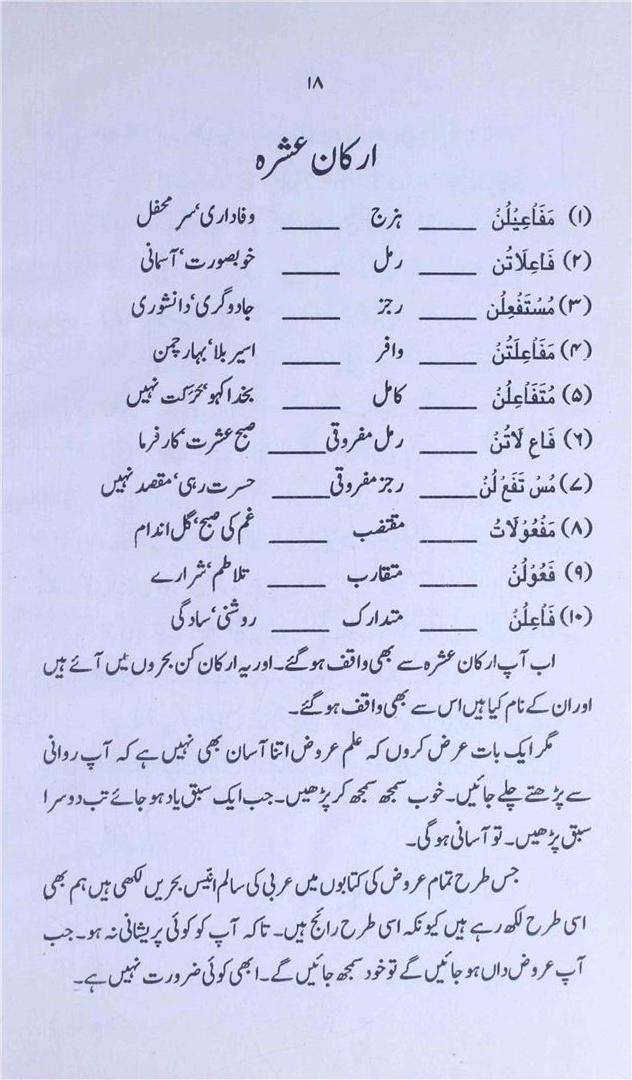 ۱۸
ارکان عشرہ
(۱) مَفَاعِیْلُنْ ____ ہزج ____ وفاداری‘ سرِ محفل
(۲) فَاعِلَاتُن ____ رمل ____ خوبصورت‘ آسمانی
(۳) مُسْتَفْعِلُن ____ رجز ____ جادوگری‘ دانشوری
(۴) مَفَاعِلَتُنْ ____ وافر ____ اسیر بلا‘ بہار چمن
(۵) مُتَفَاعِلُنْ ____ کامل ____ بخدا کہو‘ حَرَکت نہیں
(۶) فَاعِ لَاتُنْ ____ رمل مفروقی ____ صبح عشرت‘ کار فرما
(۷) مُسْ تَفْعِ لُنْ ____ رجز مفروقی ____ حسرت رہی‘ مقصد نہیں
(۸) مَفْعُوْلَاتُ ____ مقتضب ____ غم کی صبح‘ گل اندام
(۹) فَعُوْلُنْ ____ متقارب ____ تلاطم‘ شرارے
(۱۰) فَاعِلُنْ ____ متدارک ____ روشنی‘ سادگی
اب آپ ارکان عشرہ سے بھی واقف ہو گئے۔ اور یہ ارکان کن بحروں میں آئے ہیں
اور ان کے نام کیا ہیں اس سے بھی واقف ہو گئے۔
مگر ایک بات عرض کروں کہ علم عروض اتنا آسان بھی نہیں ہے کہ آپ روانی
سے پڑھتے چلے جائیں۔ خوب سمجھ سمجھ کر پڑھیں۔ جب ایک سبق یاد ہو جائے تب دوسرا
سبق پڑھیں۔ تو آسانی ہو گی۔
جس طرح تمام عروض کی کتابوں میں عربی کی سالم انیّس بحریں لکھی ہیں ہم بھی
اسی طرح لکھ رہے ہیں کیونکہ اسی طرح رائج ہیں۔ تاکہ آپ کو کوئی پریشانی نہ ہو۔ جب
آپ عروض داں ہو جائیں گے تو خود سمجھ جائیں گے۔ ابھی کوئی ضرورت نہیں ہے۔